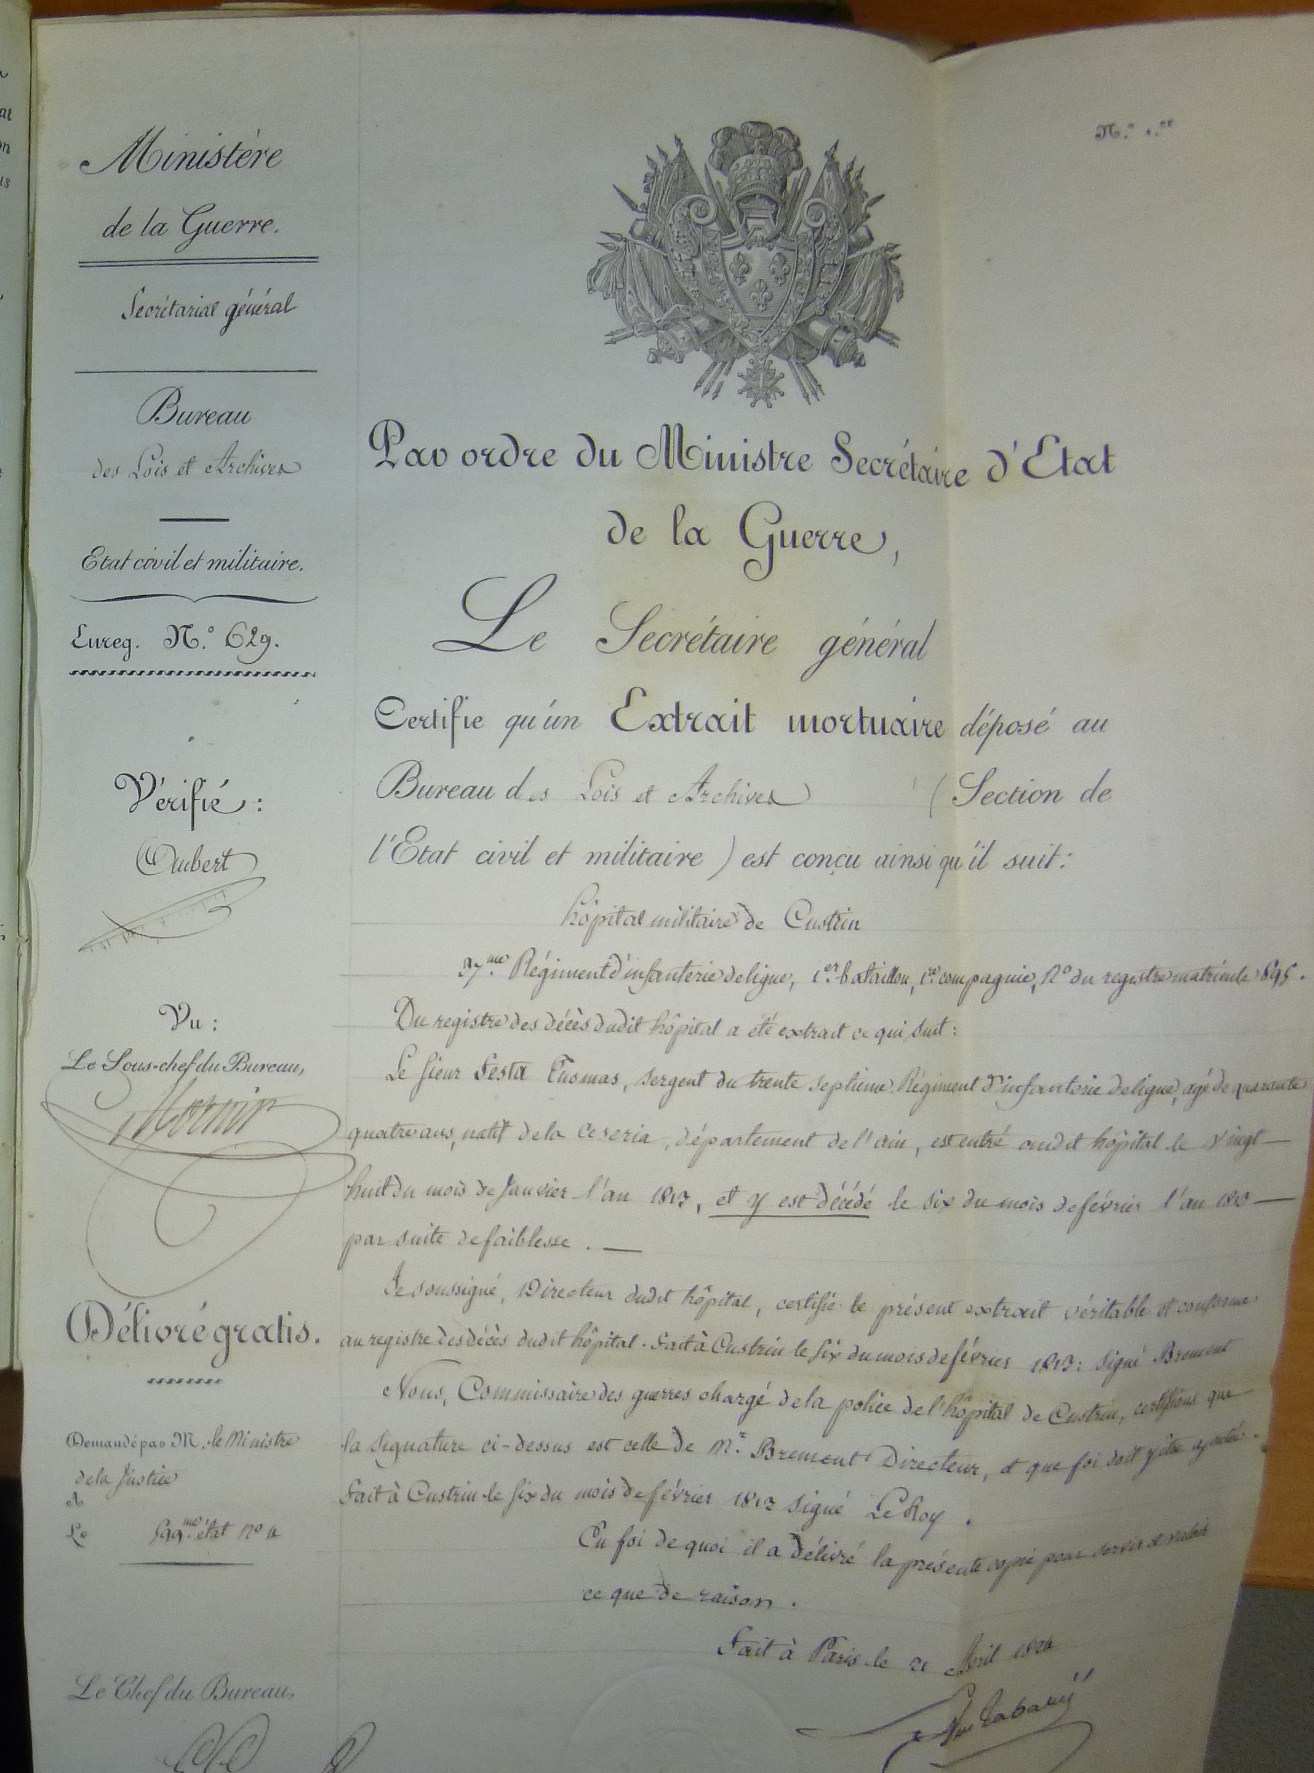 N.º 1.er
Ministère
de la Guerre.
Secrétariat général
Bureau
des Lois et Archives
Etat civil et militaire.
Enreg. N.º 629.
Vérifié :
Aubert
Vu :
Le Sous-chef du Bureau,
Délivré gratis.
Demandé par M. le Ministre
de la Justice
A
Le 599.me état nº 4
Le Chef du Bureau,
Par ordre du Ministre Secrétaire d'Etat
de la Guerre,
Le Secrétaire général
Certifie qu'un Extrait mortuaire déposé au
Bureau des Lois et Archives (Section de
l'Etat civil et militaire) est conçu ainsi qu'il suit :
hôpital militaire de Custrin
37.me Régiment d'infanterie de ligne, 1.er bataillon, 1.re compagnie, Nº du registre matricule 895.
Du registre des décès dudit hôpital a été extrait ce qui suit :
Le sieur Festa Thomas, sergent du trente septième Régiment d'infanterie de ligne, agé de quarante
quatre ans, natif de la Ceseria, département de l'ain, est entré audit hôpital le vingt
huit du mois de Janvier l'an 1813, et y est décédé le six du mois de février l'an 1813
par suite de faiblesse.
Je soussigné, Directeur dudit hôpital, certifie le présent extrait véritable et conforme
au registre des décès dudit hôpital. Fait à Custrin le six du mois de février 1813 : signé Brement
Nous, Commissaire des guerres chargé de la police de l'hôpital de Custrin, certifions que
la signature ci-dessus est celle de M.r Brement Directeur, et que foi doit y être ajoutée.
Fait à Custrin le six du mois de février 1813 signé Le Roy.
En foi de quoi il a délivré la présente copie pour servir et valoir
ce que de raison.
Fait à Paris le 21 Avril 1824